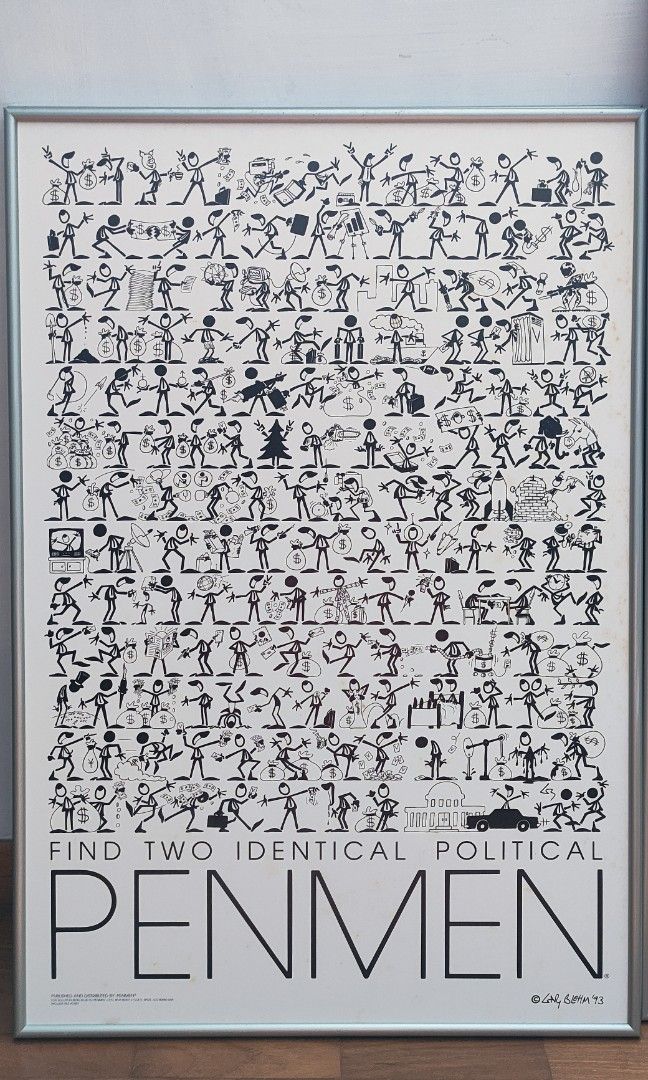 FIND TWO IDENTICAL POLITICAL
PENMEN®
PUBLISHED AND DISTRIBUTED BY PENMEN®
© Gary Blehm '93